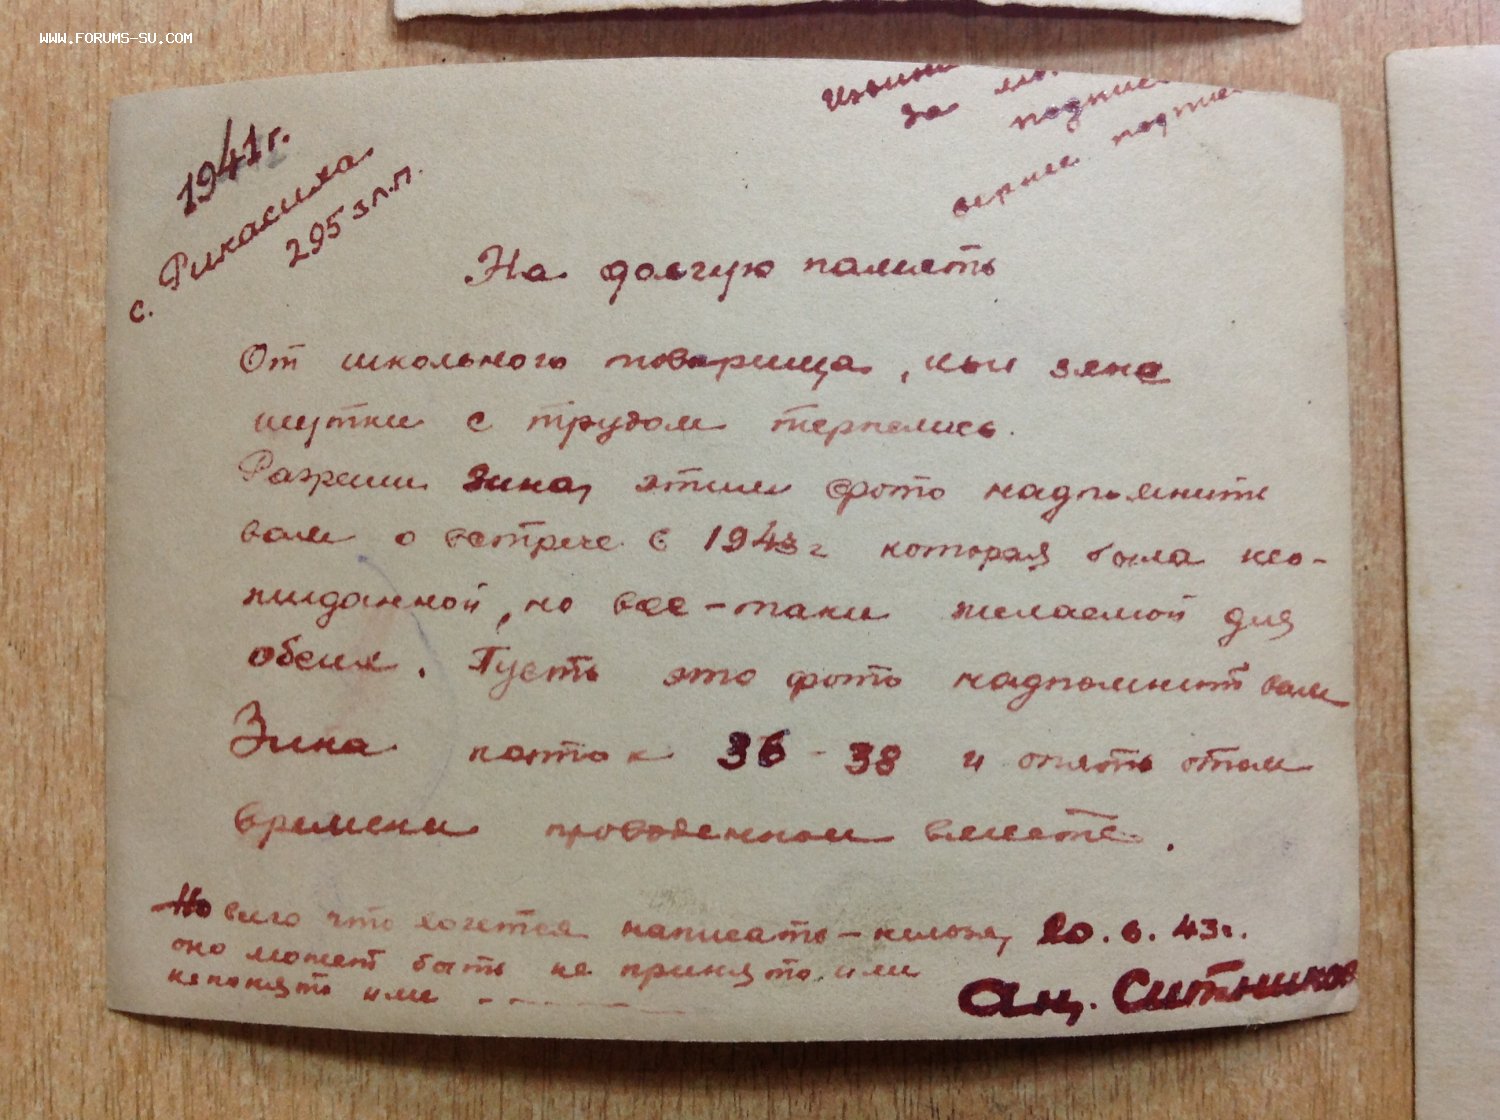 WWW.FORUMS-SU.COM
1941г.
с. Рикасиха
295 з.п.п.
за
подпис
вернее подпис
На долгую память
От школьного товарища, чьи
шутки с трудом терпелись.
Разреши Зина, этим фото надпомнить
вам о встрече в 1943г которая была нео-
жиданной, но все-таки желаемой для
обеих. Пусть это фото надпомнит вам
Зина 36-38 и опять этом
времени проведенном вместе.
Но всего что хочется написать-нельзя,
оно может быть не принято или
непонято или - - - -
20.6.43г.
Ан. Ситников